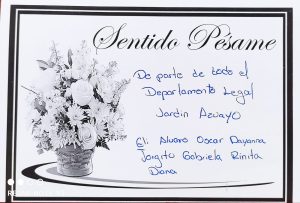 Sentido Pésame
De parte de todo el
Departamento Legal
Jardín Azuayo
Eli Alvaro Oscar Dayanna
Jorgito Gabriela Rinita
Diana